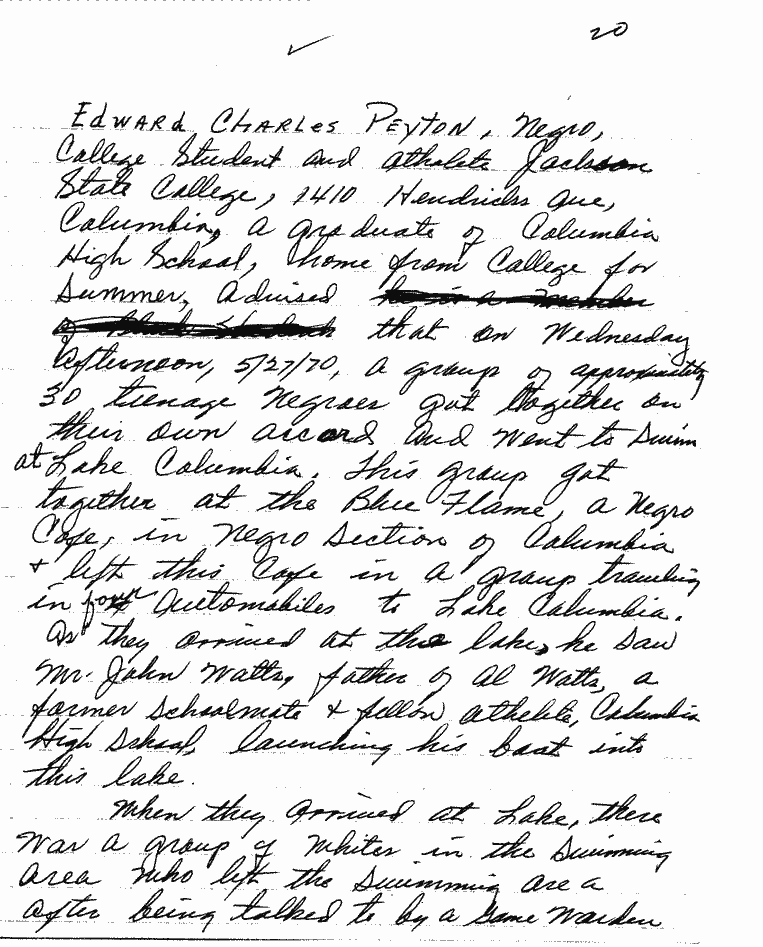 20
Edward Charles Peyton, Negro,
College Student and athelete Jackson
State College, 1410 Hendricks Ave,
Columbia, a graduate of Columbia
High School, home from College for
Summer, advised he is a member
of Black Students that on Wednesday
afternoon, 5/27/70, a group of approximately
30 teenage Negroes got together on
their own accord and went to swim
at Lake Columbia. This group got
together at the Blue Flame, a Negro
Cafe, in Negro Section of Columbia
+ left this Cafe in a group traveling
in four automobiles to Lake Columbia.
As they arrived at the lake, he saw
Mr. John Watts, father of Al Watts, a
former schoolmate + fellow athelete, Columbia
High School, launching his boat into
this lake.
When they arrived at Lake, there
was a group of whites in the swimming
area who left the swimming area
after being talked to by a Game Warden